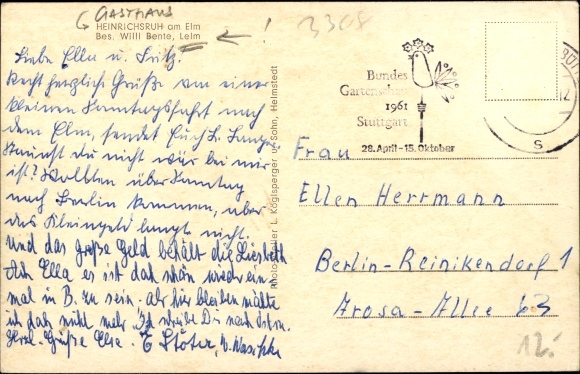 GASTHAUS
HEINRICHSRUH am Elm
Bes. Willi Bente, Lelm
3368
Liebe Ella u. Fritz!
Recht herzliche Grüße von einer
kleinen Sonntagsfahrt nach
dem Elm, sendet Euch
du nicht wär bei mir
ist? Wollten über Sonntag
nach Berlin kommen, aber
das Kleingeld langt nicht.
und das große Geld behält die Liesbeth
Ach Ella es ist doch schön wieder ein-
mal in B. zu sein - aber hier bleiben möchte
ich doch nicht mehr. Ich schreibe Dir nach Ostern.
Herzl. Grüße Else. E Stöter,
Photo L. Köglsperger u. Sohn, Helmstedt
Bundes
Gartenschau
1961
Stuttgart
28. April - 15. Oktober
s
Frau
Ellen Herrmann
Berlin-Reinikendorf 1
Arosa-Allee 63
12.-